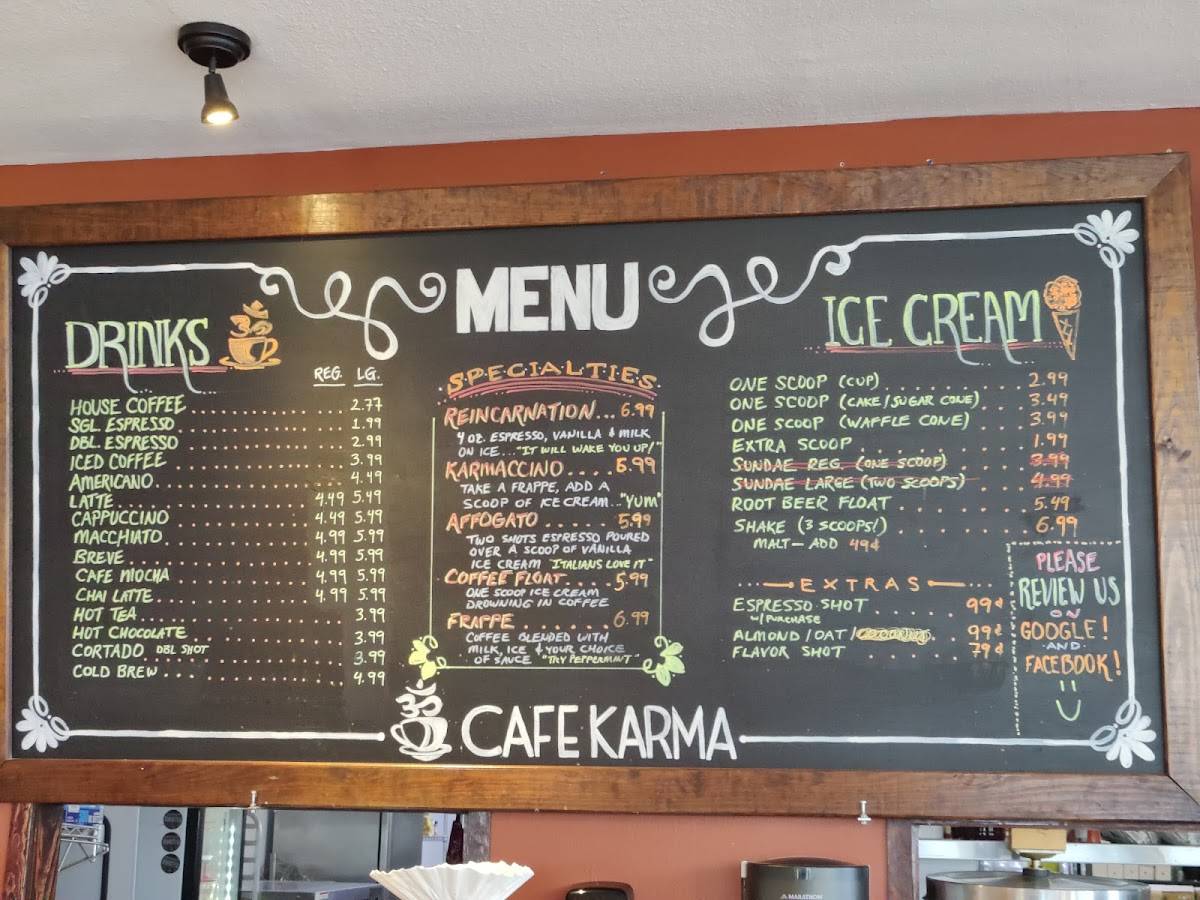 MENU
DRINKS
REG. LG.
HOUSE COFFEE 2.77
SGL ESPRESSO 1.99
DBL. ESPRESSO 2.99
ICED COFFEE 3.99
AMERICANO 4.49
LATTE 4.49 5.49
CAPPUCCINO 4.49 5.49
MACCHIATO 4.99 5.99
BREVE 4.99 5.99
CAFE MOCHA 4.99 5.99
CHAI LATTE 4.99 5.99
HOT TEA 3.99
HOT CHOCOLATE 3.99
CORTADO DBL SHOT 3.99
COLD BREW 4.99
SPECIALTIES
REINCARNATION... 6.99
4 OZ. ESPRESSO, VANILLA & MILK
ON ICE... "IT WILL WAKE YOU UP!"
KARMACCINO 6.99
TAKE A FRAPPE, ADD A
SCOOP OF ICE CREAM... "YUM"
AFFOGATO 5.99
TWO SHOTS ESPRESSO POURED
OVER A SCOOP OF VANILLA
ICE CREAM "ITALIANS LOVE IT"
COFFEE FLOAT 5.99
ONE SCOOP ICE CREAM
DROWNING IN COFFEE
FRAPPE 6.99
COFFEE BLENDED WITH
MILK, ICE & YOUR CHOICE
OF SAUCE "TRY PEPPERMINT"
ICE CREAM
ONE SCOOP (CUP) 2.99
ONE SCOOP (CAKE/SUGAR CONE) 3.49
ONE SCOOP (WAFFLE CONE) 3.99
EXTRA SCOOP 1.99
SUNDAE REG. (ONE SCOOP) 3.99
SUNDAE LARGE (TWO SCOOPS) 4.99
ROOT BEER FLOAT 5.49
SHAKE (3 SCOOPS!) 6.99
MALT - ADD 49¢
EXTRAS
ESPRESSO SHOT 99¢
W/PURCHASE
ALMOND/OAT/ 99¢
FLAVOR SHOT 79¢
PLEASE
REVIEW US
ON
GOOGLE!
AND
FACEBOOK!
CAFE KARMA
MARATHON